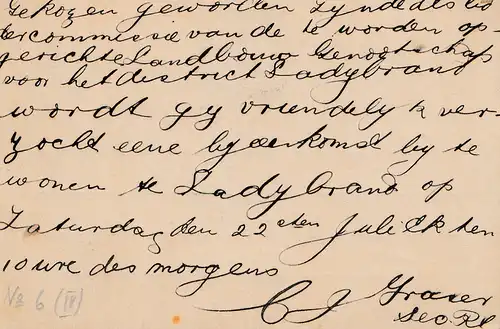 Gekozen geworden zynde als lid
der commissie van de te worden op-
gerichte Landbouw Genootschap
voor het district Ladybrand
wordt gy vriendelyk ver-
zocht eene byeenkomst by te
wonen te Ladybrand op
Zaturdag den 22sten Juli Ek ten
10 ure des morgens
C J
Sec.
No 6 (IV)